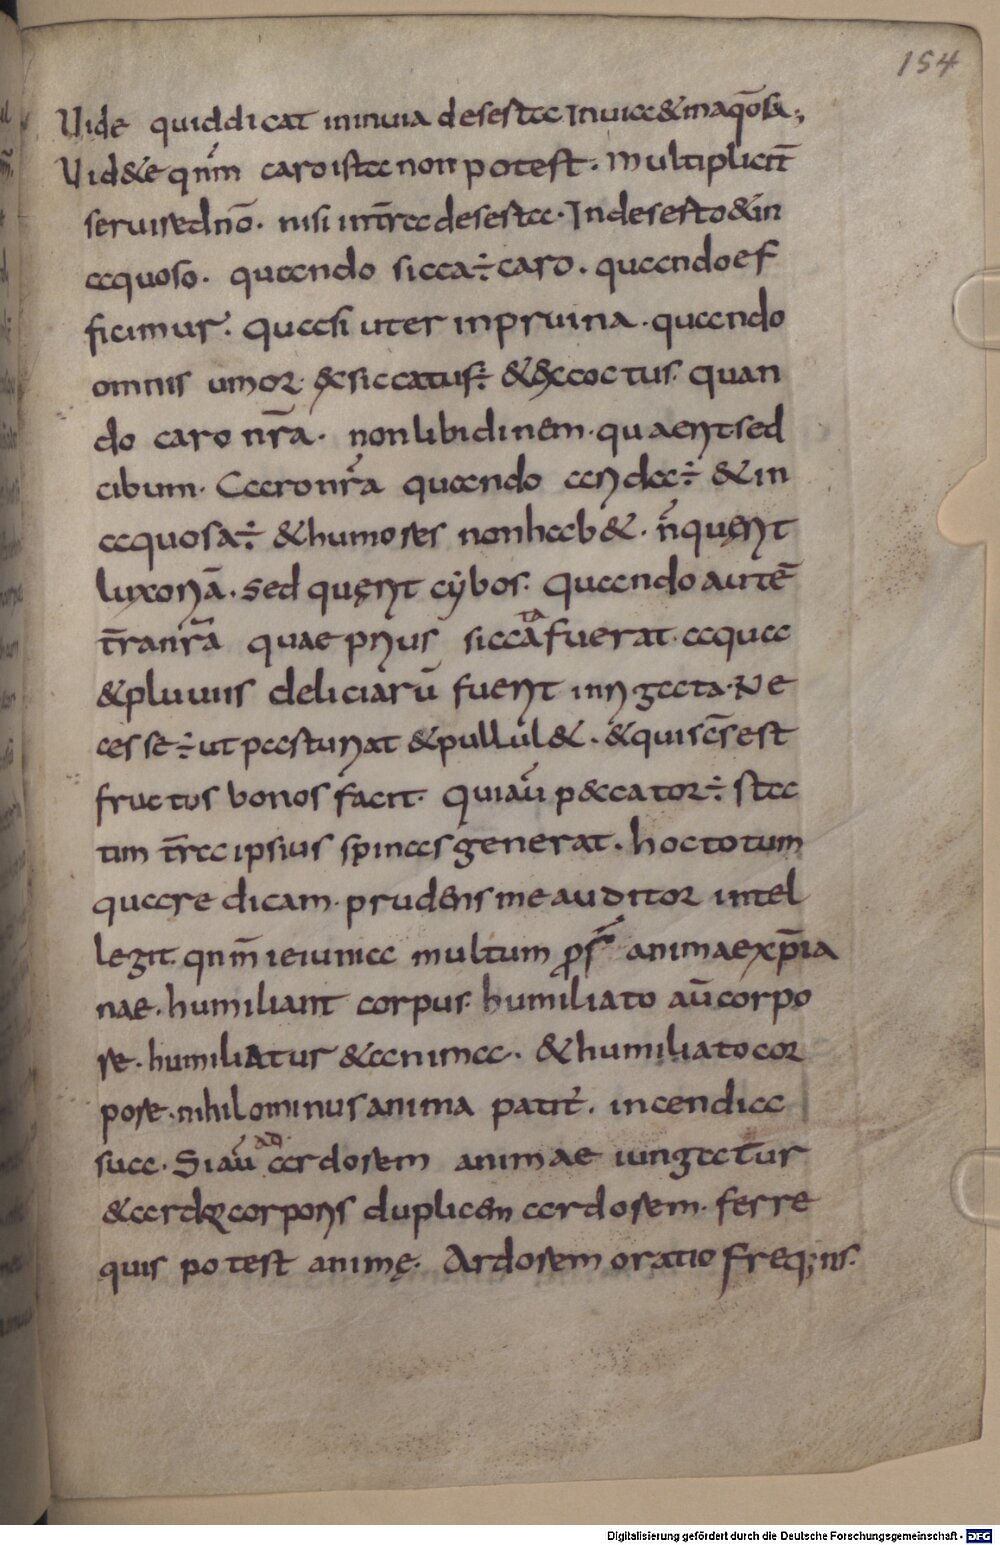 154
Uide quiddicat ininuia deserta Inuia &inaq̄osa;
Uid&e qnm̄ caroista non potest. multiplicit̄
seruisedn̄o. nisi int̄ra deserta. Indeserto&in
aquoso. quando sicca÷ caro. quandoef
ficimur. quasi uter inpruina. quando
omnis umor. exsiccatus÷ &excoctus. quan
do caro nr̄a. nonlibidinem. quaeritsed
cibum. Caro nr̄a quando arida÷ &in
aquosa÷ &humores nonhab&. n̄ querit
luxoriā. sed querit cybos. Quando autē
t̄ranr̄a quae prius siccata fuerat. aqua
&pluuiis deliciarū fuerit inrigata. Ne
cesse÷ ut pasturiat &pullul&. &quisc̄sest
fructus bonos facit. Quiaū peccator÷ sta
tim t̄ra ipsius spinas generat. hoctotum
quare dicam. prudens me auditor intel
legit. qnm̄ ieiunia multum ꝓs̄ animaexp̄ia
nae. humiliant corpus. humiliato aūcorpo
re. humiliatur &anima. &humiliatocor
pore. nihilominusanima patit̄. incendia
sua. Siaū ad ardorem animae iungatur
&ardor corporis duplicem ardorem. ferre
quis potest animę. Ardorem oratio freq;ns.
Digitalisierung gefördert durch die Deutsche Forschungsgemeinschaft - DFG